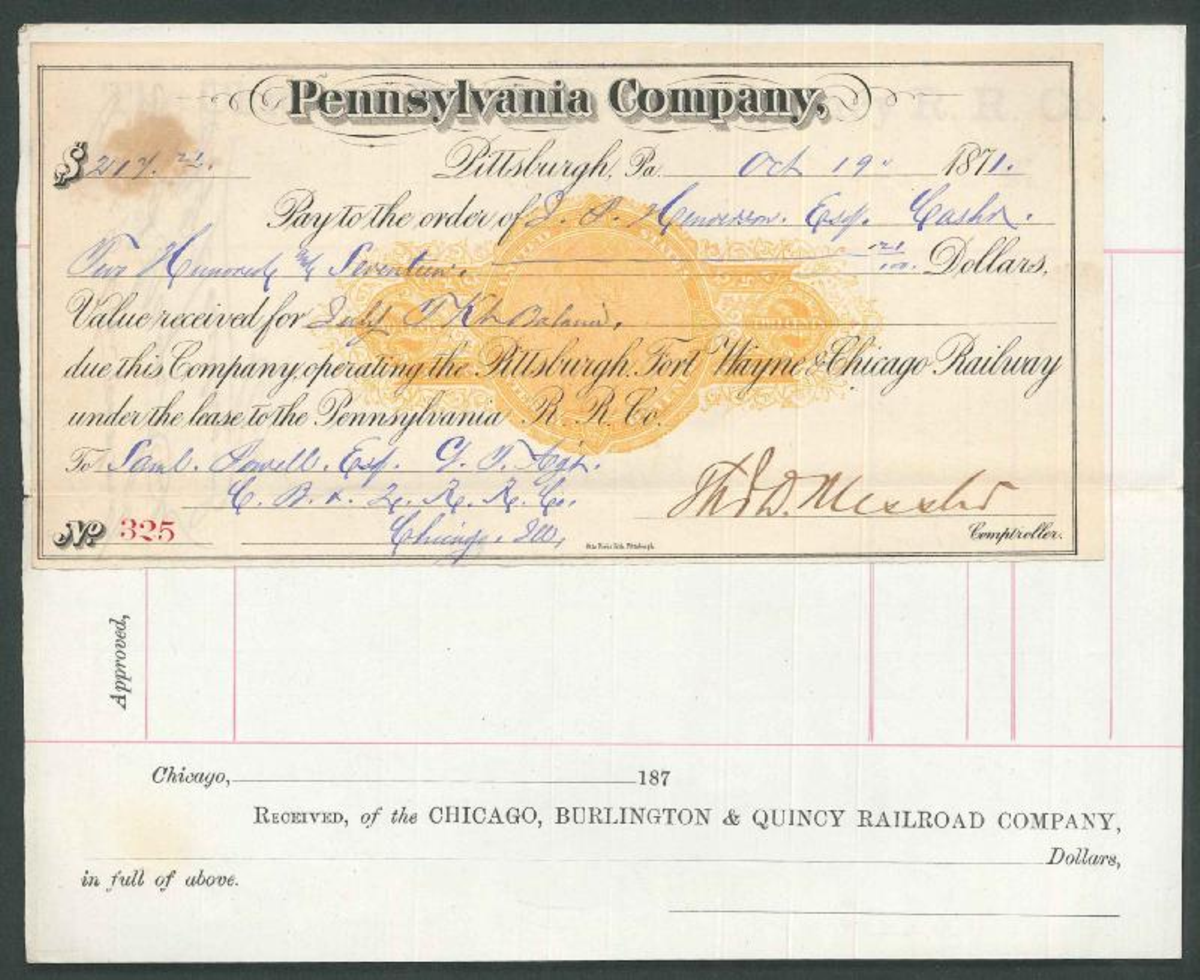 Pennsylvania Company,
$ 217. 21/.
Pittsburgh, Pa. Oct 19" 1871.
Pay to the order of J. P. Henderson. Esq. Cashr.
Two Hundred & Seventeen. 21/100. Dollars,
Value received for July T Kt Balance.
due this Company, operating the Pittsburgh, Fort Wayne & Chicago Railway
under the lease to the Pennsylvania R. R. Co.
To Saml. Powell. Esq. G. T. Agt.
C. B. & Q. R. R. Co.
Chicago. Ill,
Thos D. Messler
Comptroller.
No 325
Approved,
Chicago, 187
Received, of the CHICAGO, BURLINGTON & QUINCY RAILROAD COMPANY,
Dollars,
in full of above.